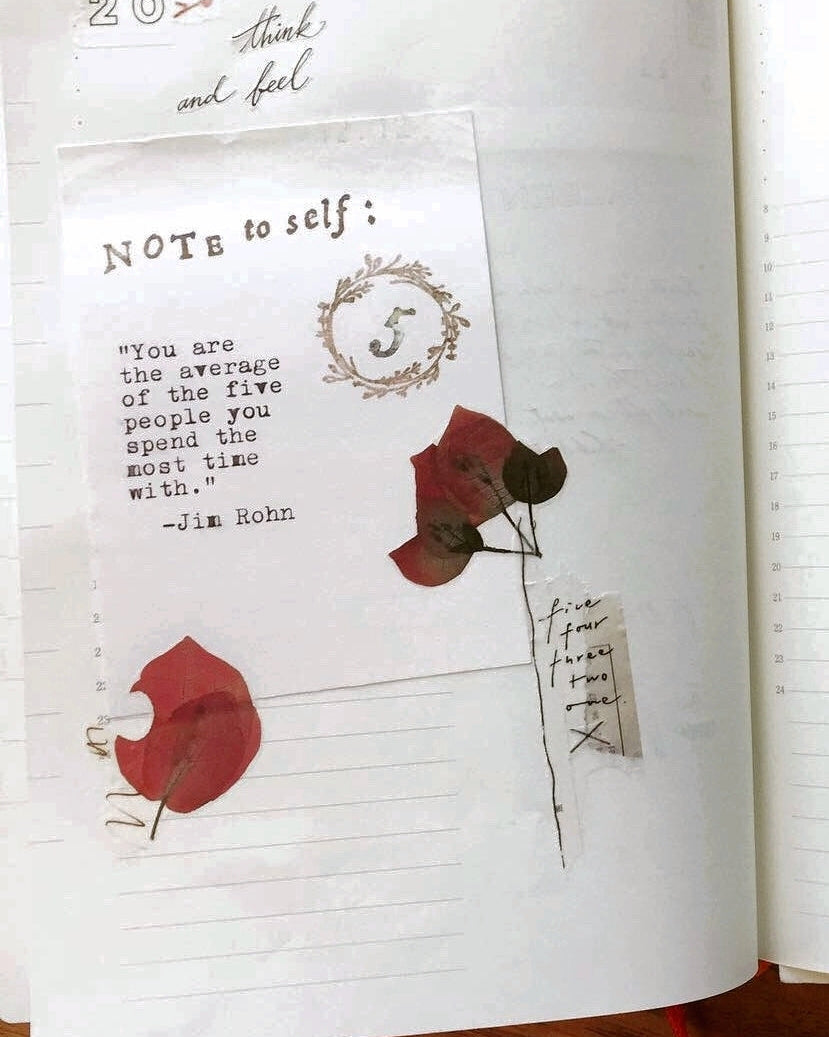 20
think
and feel
NOTE to self:
5
"You are
the average
of the five
people you
spend the
most time
with."
-Jim Rohn
five
four
three
two
one.
X
8
9
10
11
12
13
14
15
16
17
18
19
20
21
22
23
24